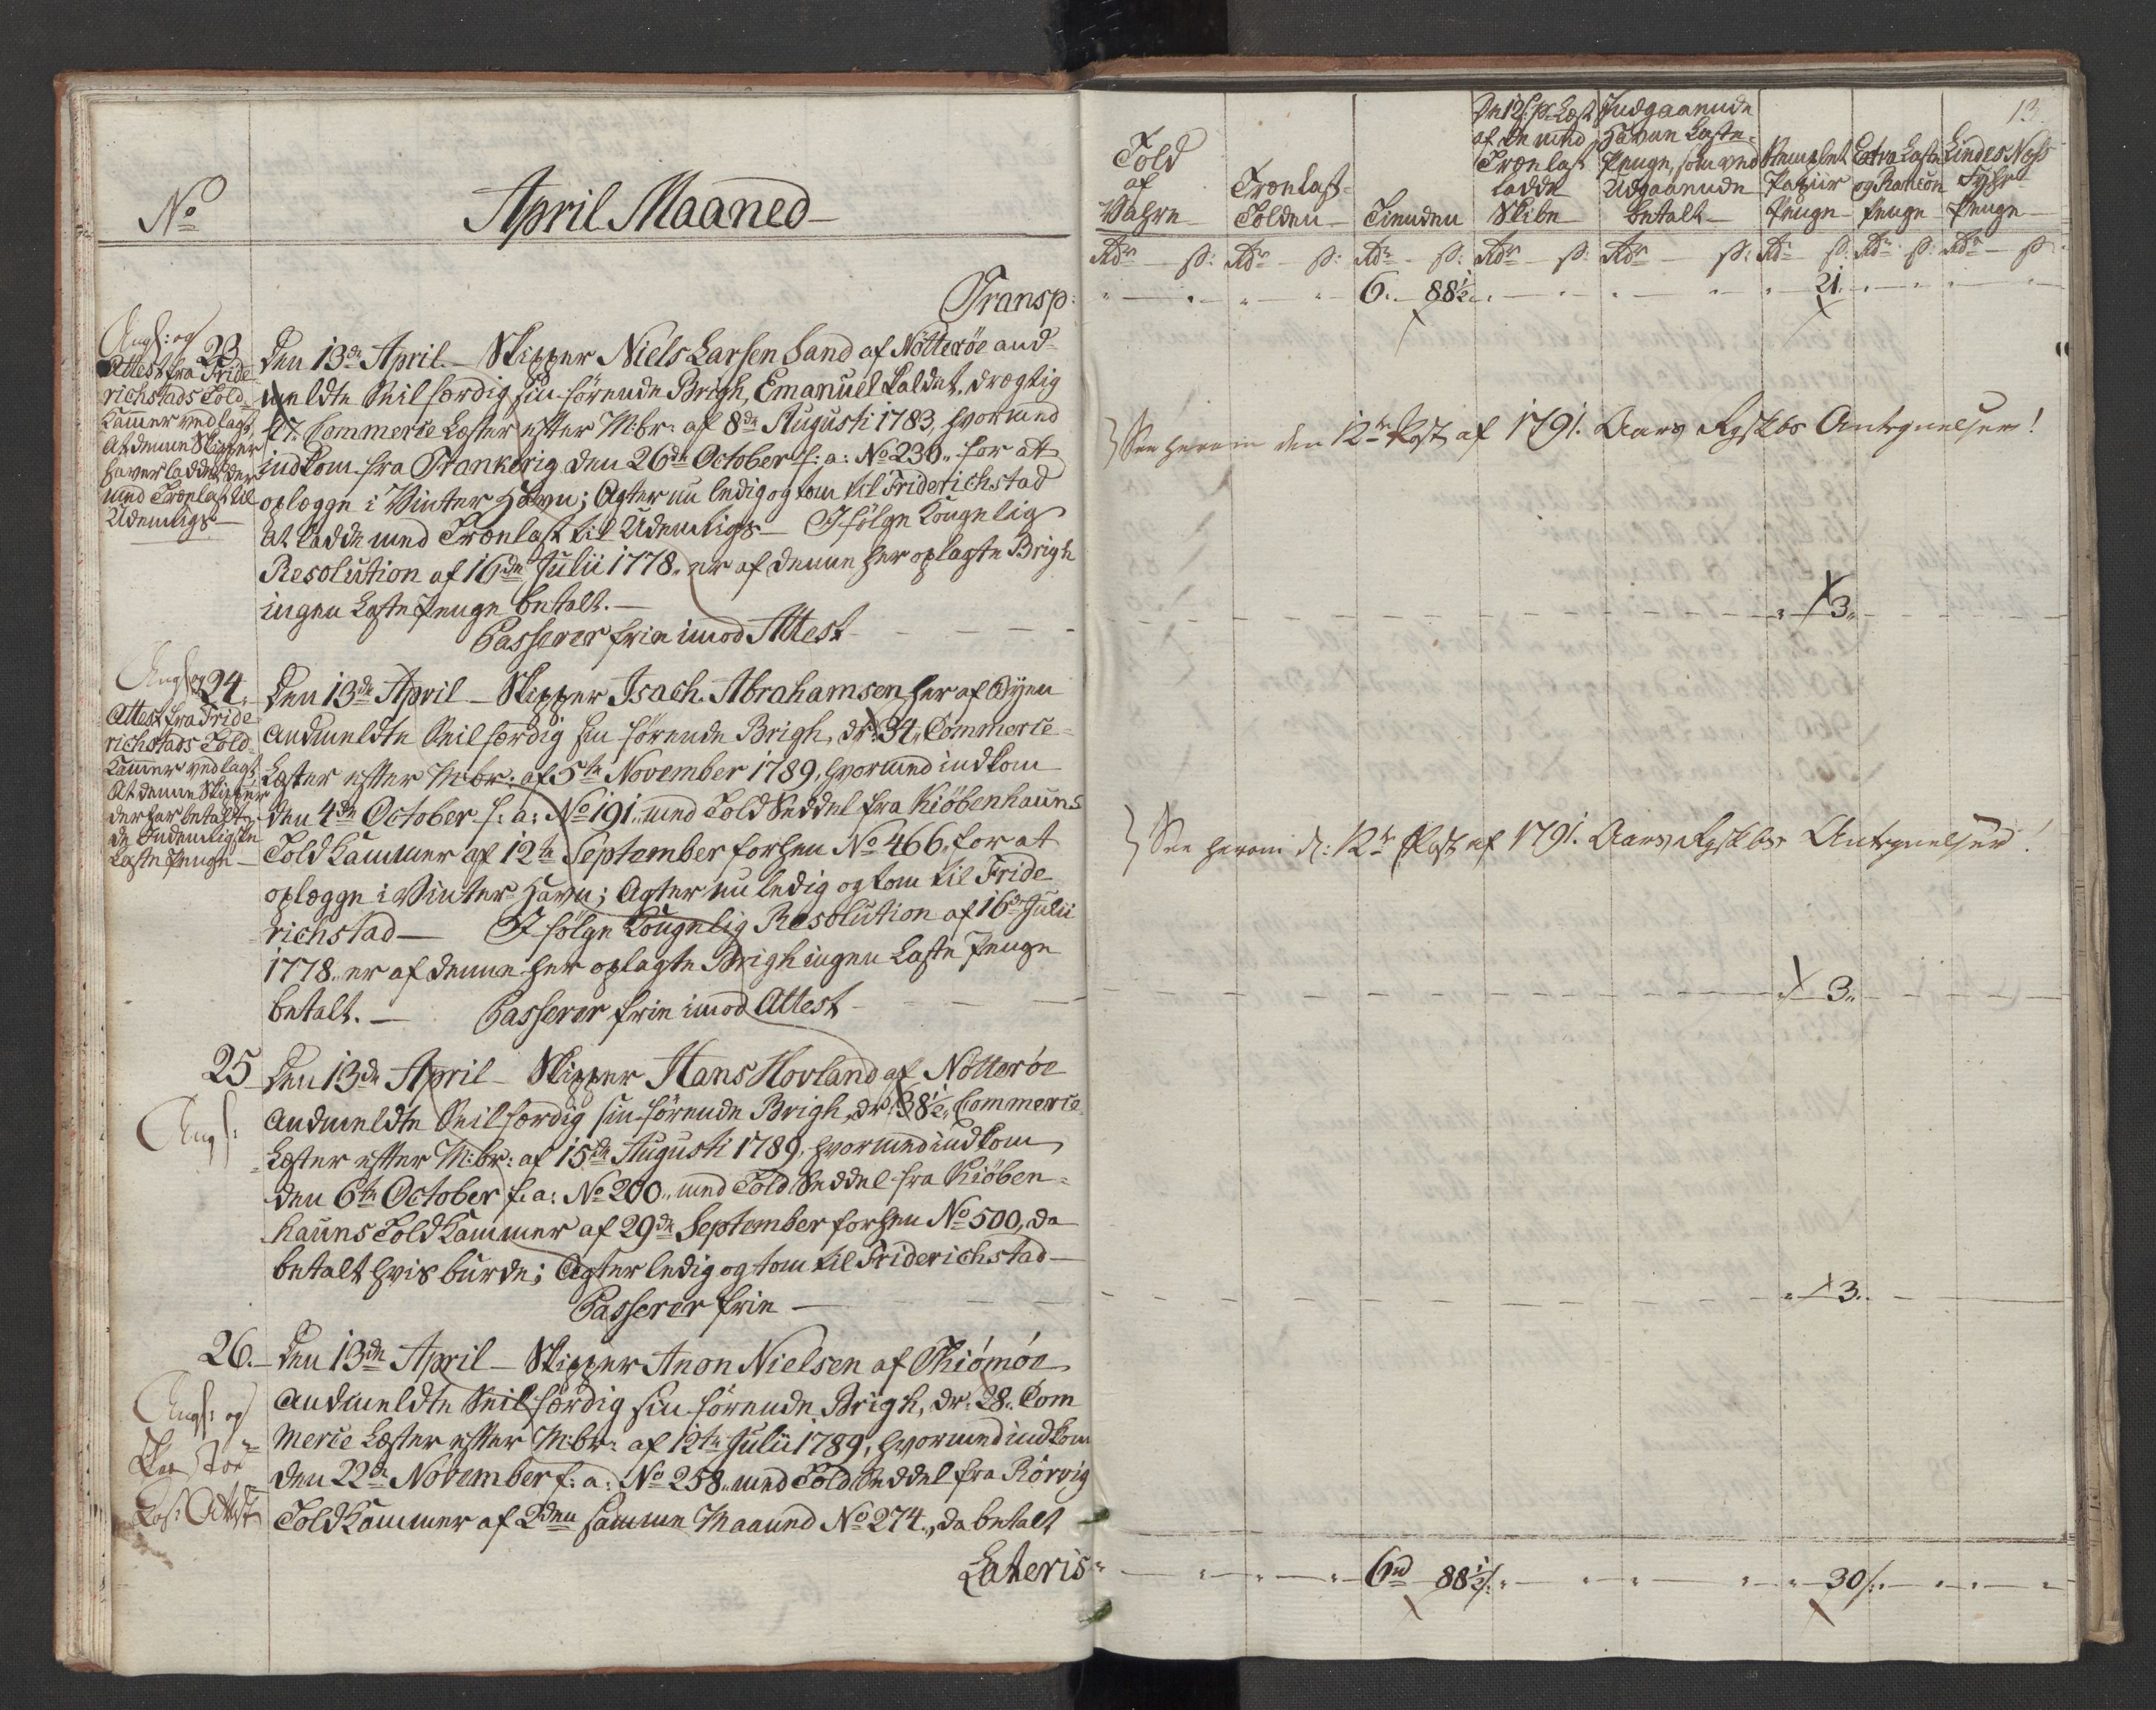 No
April Maaned
Transp:
Angf: og
23
Attest fra Fride-
richstads Told-
Kammer vedlagt,
At denne Skipper
haver laddet der
med Trælast til
Udenrigs
Den 13de April. Skipper Niels Larsen Sand af Nötteröe and-
meldte Seilfærdig sin förende Brigh, Emanuel kaldet, drægtig
47. Commerce Læster efter M:br: af 8de Augusti 1783, hvormed
indkom fra Frankerig den 26de October f: a: No 230,, for at
oplægge i Vinter Havn; Agter nu ledig og tom til Friderichstad
at ladde med Trælast til Udenrigs — I fölge Kongelig
Resolution af 16de Julii 1778,, er af denne her oplagte Brigh
ingen Laste Penge betalt. —
Passerer frie imod Attest
Angf: og 24.
Attest fra Fride-
richstads Told-
Kammer vedlagt,
At denne Skipper
der har betalt
de Indenrigske
Laste Penge
Den 13de April — Skipper Isach Abrahamsen her af Öyen
Andmeldte Seilfærdig sin förende Brigh, dr: 34,, Commerce-
Læster efter M:br: af 5te November 1789, hvormed indkom
den 4de October f: a: No 191,, med Told Seddel fra Kiöbenhauns
Told Kammer af 12te September forhen No 466,, for at
oplægge i Vinter Havn; Agter nu ledig og tom til Fride-
richstad — I fölge Kongelig Resolution af 16de Julii
1778,, er af denne her oplagte Brigh ingen Laste Penge
betalt. — Passerer frie imod Attest
25
Angf:
Den 13de April — Skipper Hans Hovland af Nötteröe
Andmeldte Seilfærdig sin förende Brigh, dr: 38½,, Commerce-
Læster efter M:br: af 15de Augusti 1789, hvormed indkom
den 6te October f: a: No 200,, med Told Seddel fra Kiöben-
hauns Told Kammer af 29de September forhen No 500, da
betalt hvis burde; Agter ledig og tom til Friderichstad —
Passerer frie —
26.
Angf: og
Den 13de April — Skipper Anon Nielsen af Thiömöe
Andmeldte Seilfærdig sin förende Brigh, dr: 28. Com
merce Læster efter M:br: af 12te Julii 1789, hvormed indkom
den 22de November f: a: No 258,, med Told Seddel fra Rörvig
Told Kammer af 2den samme Maaned No 274,, da betalt
Lateris
13.
Told af Vahre
Trælast-Tolden
Tienden
De 12 s: pr Læst af de med Trælast ladde Skibe
Indgaaende Havne Laste-Penge, som ved Udgaaende betalt
Stemplet Papiir Penge
Extra Laste og Rancon Penge
Lindes Næss Fyhr Penge
Rdr — s: Rdr — s: Rdr — s: Rdr — s: Rdr — s: Rdr s: Rdr s: Rdr s:
6. 88½ 21.
See herom den 12te Post af 1791. Aars Rgskbs Antegnelser!
3,,
See herom d: 12te Post af 1791. Aars Rgskbs Antegnelser!
3,,
3.
6rd 88½ s: 30 s: